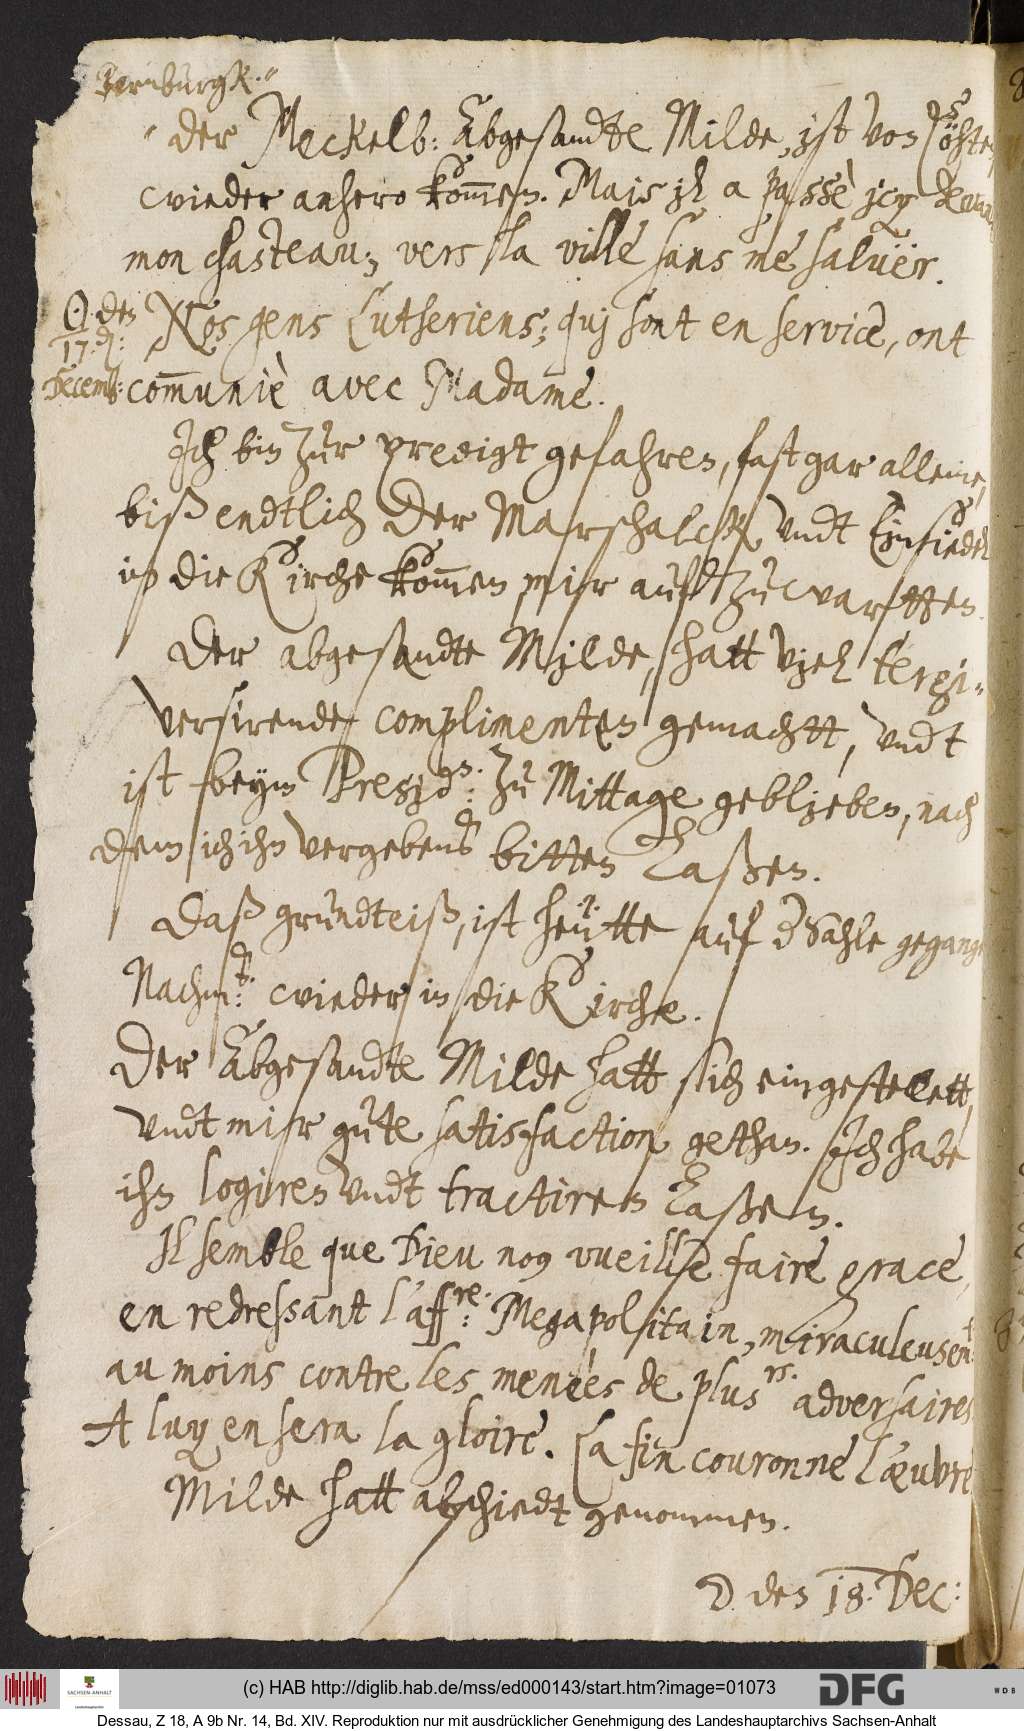 Bernburgk.
Der Meckelb: Abgesandte Milde, ist von
wieder anhero kom̅en. Mais il a passè icy
mon chasteau; vers la ville sans me salüer.
☉ den
17. d:
Decemb:
Nos gens Lutheriens; quj sont en service, ont
com̅uniè avec Madame.
Ich bin zur predigt gefahren, fast gar alleine,
biß endtlich der Marschalck vndt Einsiedel
in die Kirche kom̅en, mir aufzuwartten.
Der abgesandte Milde, hatt viel tergi-
versirende complimenten gemachtt, vndt
ist beym Presid: zu Mittage geblieben, nach
dem ich ihn vergebens bitten laßen.
Daß grundteiß, ist heütte auf d Sahle gegang
Nachm: wieder in die Kirche.
Der Abgesandte Milde hatt sich eingestellett,
vndt mir gute satisfaction gethan. Ich habe
ihn logiren vndt tractiren laßen.
Il semble que Dieu nous vueille faire grace,
en redressant l'aff:re Megapolitain, miraculeusem:t
au moins contre les menèes de plus:rs adversaires
A luy en sera la gloire. La fin couronne l'œuvre
Milde hatt abschiedt genommen.
☽ den 18. Dec:
(c) HAB http://diglib.hab.de/mss/ed000143/start.htm?image=01073
SACHSEN-ANHALT
DFG
WDB
Dessau, Z 18, A 9b Nr. 14, Bd. XIV. Reproduktion nur mit ausdrücklicher Genehmigung des Landeshauptarchivs Sachsen-Anhalt